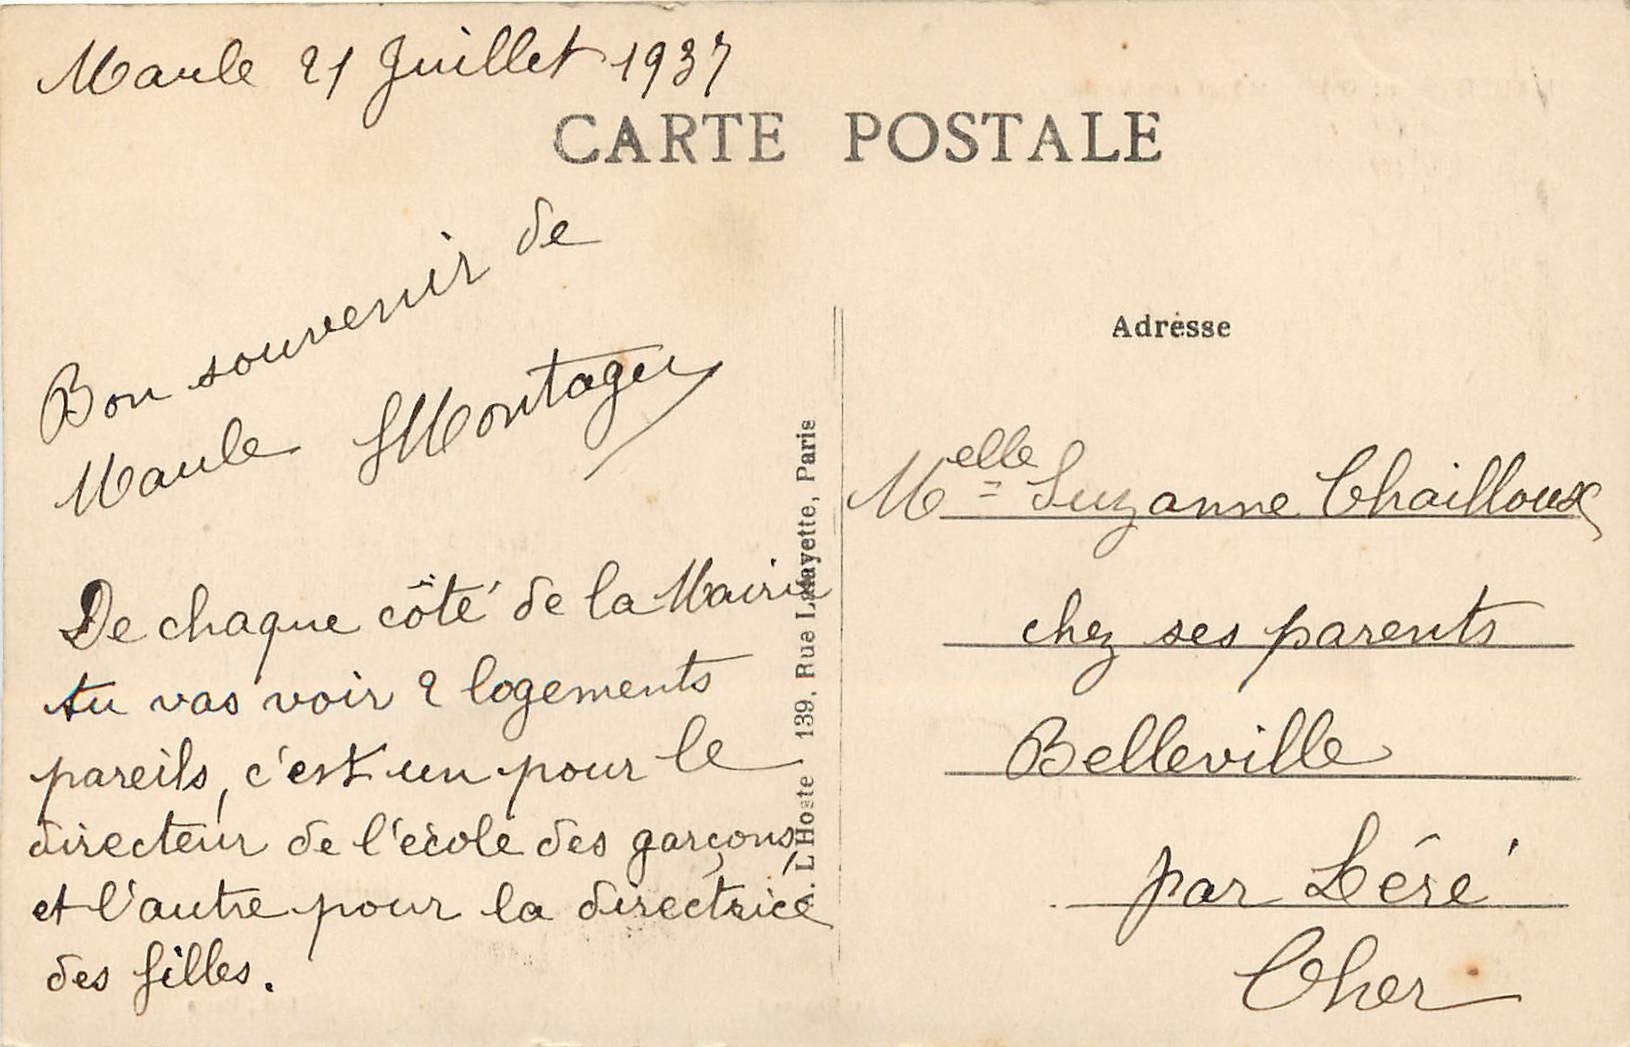 Maule 21 Juillet 1937
CARTE POSTALE
Bon souvenir de
Maule
De chaque côté de la Mairie
tu vas voir 2 logements
pareils, c'est un pour le
directeur de l'école des garçons,
et l'autre pour la directrice
des filles.
L'Hoste 139, Rue Lafayette, Paris
Adresse
Melle Suzanne Chailloux
chez ses parents
Belleville
par Léré
Cher